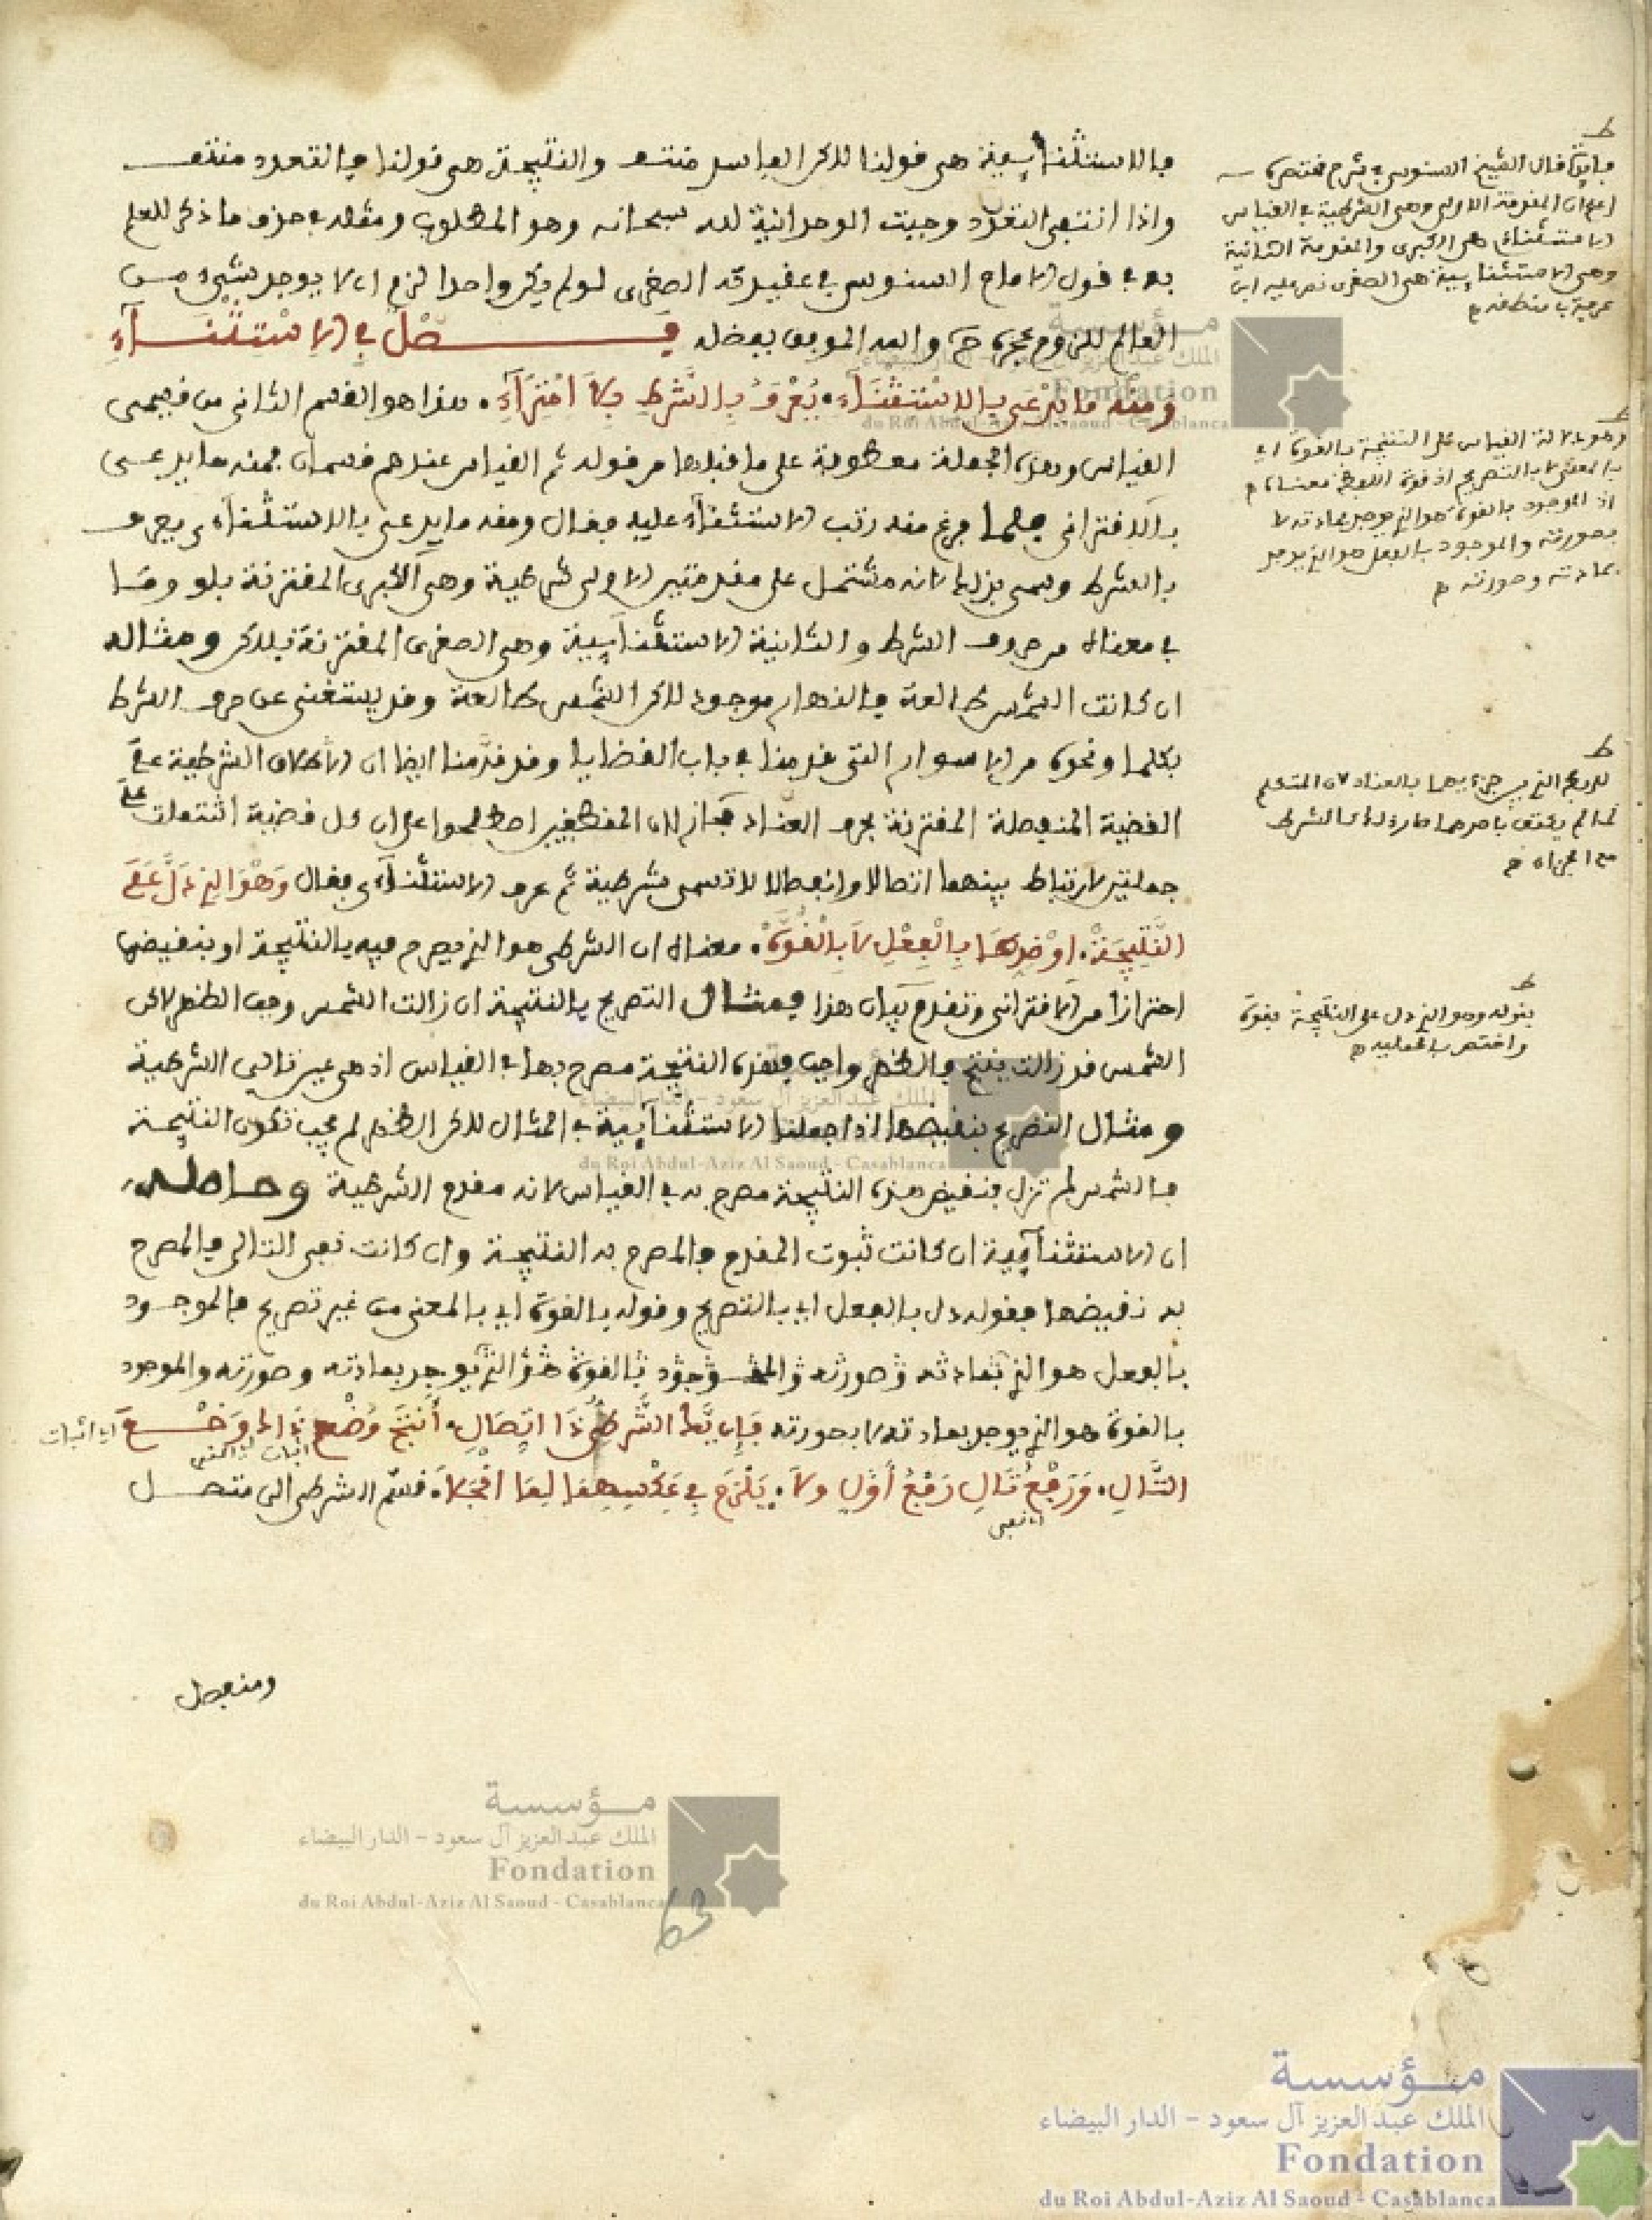 فالاستثنائية هي قولنا لاكن الفاسد منتف والنتيجة هي قولنا فالتعدد منتف
واذا انتفى التعدد وجبت الوحدانية لله سبحانه وهو المطلوب ومثله في حذف ما ذكر للعلم
به في قول الامام السنوسي في عقيدته الصغرى لو لم يكن واحدا لزم ان لا يوجد شيء من
العالم للزوم عجزه ح والله الموفق بفضله فصل في الاستثناء
ومنه ما يدعى بالاستثناء. يُعرف بالشرط بلا امتراء. هذا هو القسم الثاني من قسمى
القياس وهذه الجملة معطوفة على ما قبلها من قوله ثم القياس عندهم قسمان فمنه ما يدعى
بالاقتراني فلما فرغ منه رتب الاستثناء عليه فقال ومنه ما يدعى بالاستثناءى يعرف
بالشرط وسمى بذلك لانه مشتمل على مقدمتين الاولى شرطية وهي الكبرى المقترنة بلو وما
في معناه من حروف الشرط والثانية الاستثنائية وهي الصغرى المقترنة بلاكن ومثاله
ان كانت الشمس طالعة فالنهار موجود لاكن الشمس طالعة وقد يستغنى عن حرف الشرط
بكلما ونحوه من الاسوار التي قدمنا في باب القضايا وقد قدمنا ايضا ان اطلاق الشرطية على
القضية المنفصلة المقترنة بحرف العناد مجاز لان المنطقيين اصطلحوا على ان كل قضية اشتملت على
جملتين لارتباط بينهما اتصالا وانفصالا تسمى شرطية ثم عرف الاستثناءى فقال وهو الذي دل على
النتيجة. او ضدها بالفعل لا بالقوة. معناه ان الشرطي هو الذي صرح فيه بالنتيجة او بنقيضها
احترازا من الاقتراني وتقدم بيان هذا فمثال التصريح بالنتيجة ان زالت الشمس وجب الظهر لاكن
الشمس قد زالت ينتج فالظهر واجب فهذه النتيجة مصرح بها في القياس اذ هي عين تالي الشرطية
ومثال التصريح بنقيضها اذا جعلنا الاستثنائية في المثال لاكن الظهر لم يجب تكون النتيجة
فالشمس لم تزل فنقيض هذه النتيجة مصرح به في القياس لانه مقدم الشرطية وحاصله
ان الاستثنائية ان كانت ثبوت المقدم فالمصرح به النتيجة وان كانت نفي التالي فالمصرح
به نقيضها فقوله دل بالفعل اي بالتصريح وقوله بالقوة اي بالمعنى من غير تصريح فالموجود
بالفعل هو الذي بمادته وصورته والموجود بالقوة هو الذي يوجد بمادته وصورته والموجود
بالقوة هو الذي يوجد بمادته لا بصورته فإن يك الشرطي ذا اتصال. أنتج وضع ذاك وضع
التالي. ورفع تال رفع أول ولا. يلزم في عكسهما لما انجلا. قسم الشرطي الى متصل
اي نفي
ومنفصل
فائدة قال الشيخ السنوسي في شرح مختصره
اعلم ان المقدمة الاولى وهي الشرطية في القياس
الاستثنائي هي الكبرى والمقدمة الثانية
وهي الاستثنائية هي الصغرى نص عليه ابن
عرفة في منطقه
وهو دلالة القياس على النتيجة بالقوة اي
بالمعنى لا بالتصريح اذ قوة اللفظ معناه
اذ الموجود بالقوة هو الذي يوجد بمادته لا
بصورته والموجود بالفعل هو الذي يوجد
بمادته وصورته
بقوله وهو الذي دل على النتيجة بقوة
واختص بالحملية
مؤسسة
الملك عبد العزيز آل سعود - الدار البيضاء
Fondation
du Roi Abdul-Aziz Al Saoud - Casablanca
63
مؤسسة
الملك عبد العزيز آل سعود - الدار البيضاء
Fondation
du Roi Abdul-Aziz Al Saoud - Casablanca